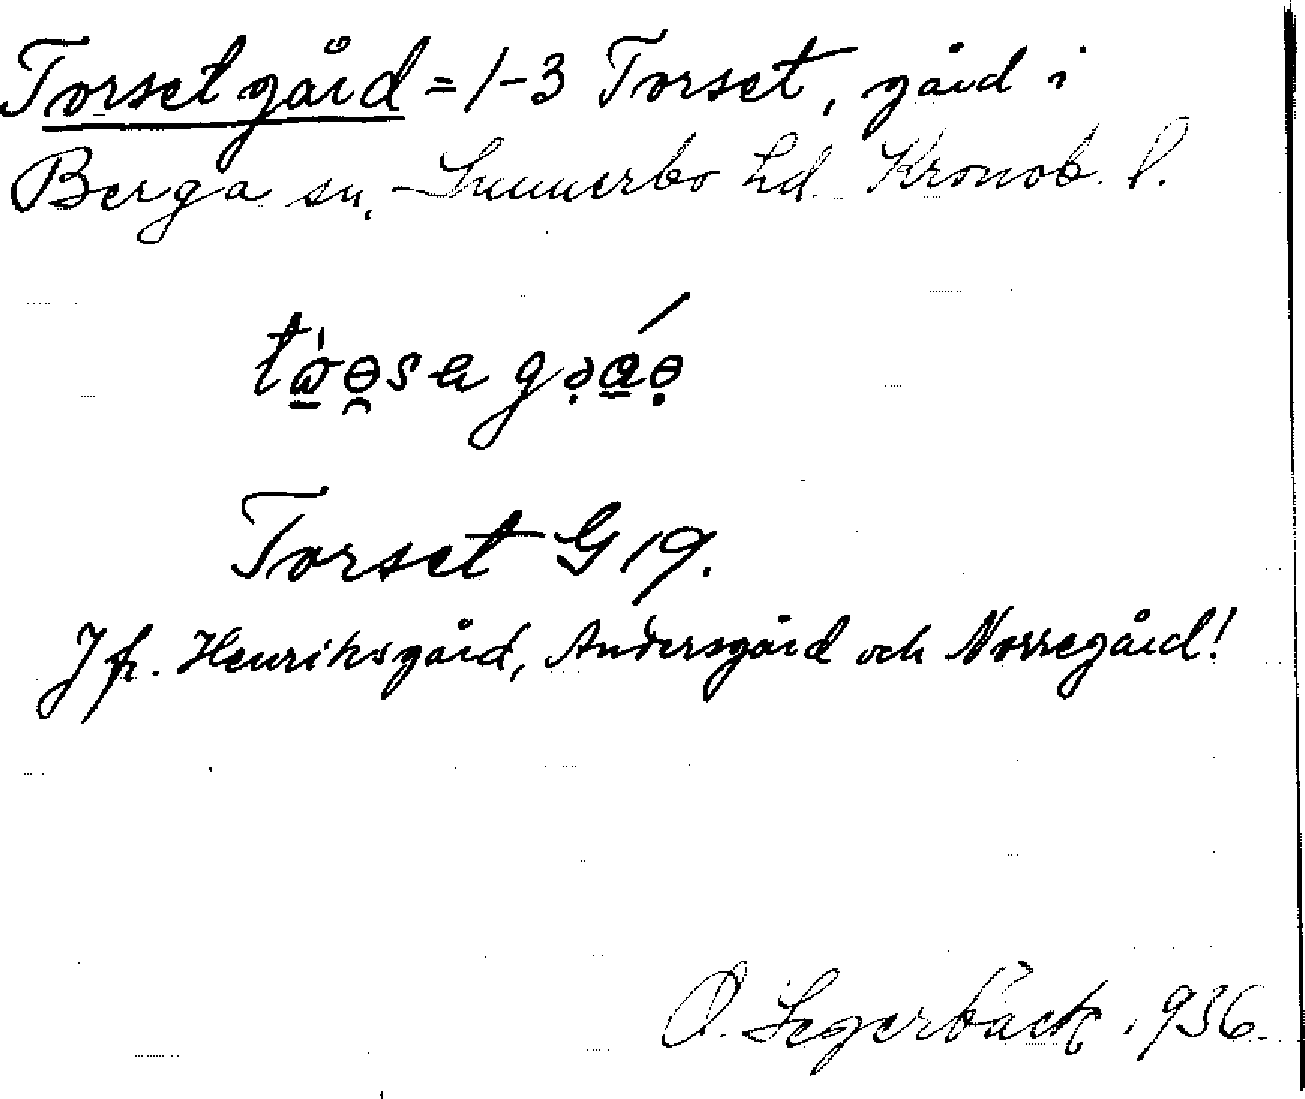 Torset gård = 1-3 Torset, gård i
Berga sn. Sunnerbo hd. Kronob. l.
Torset G 19.
Jfr. Henriksgård, Andersgård och Norregård!
O. Segerbäck 1936.